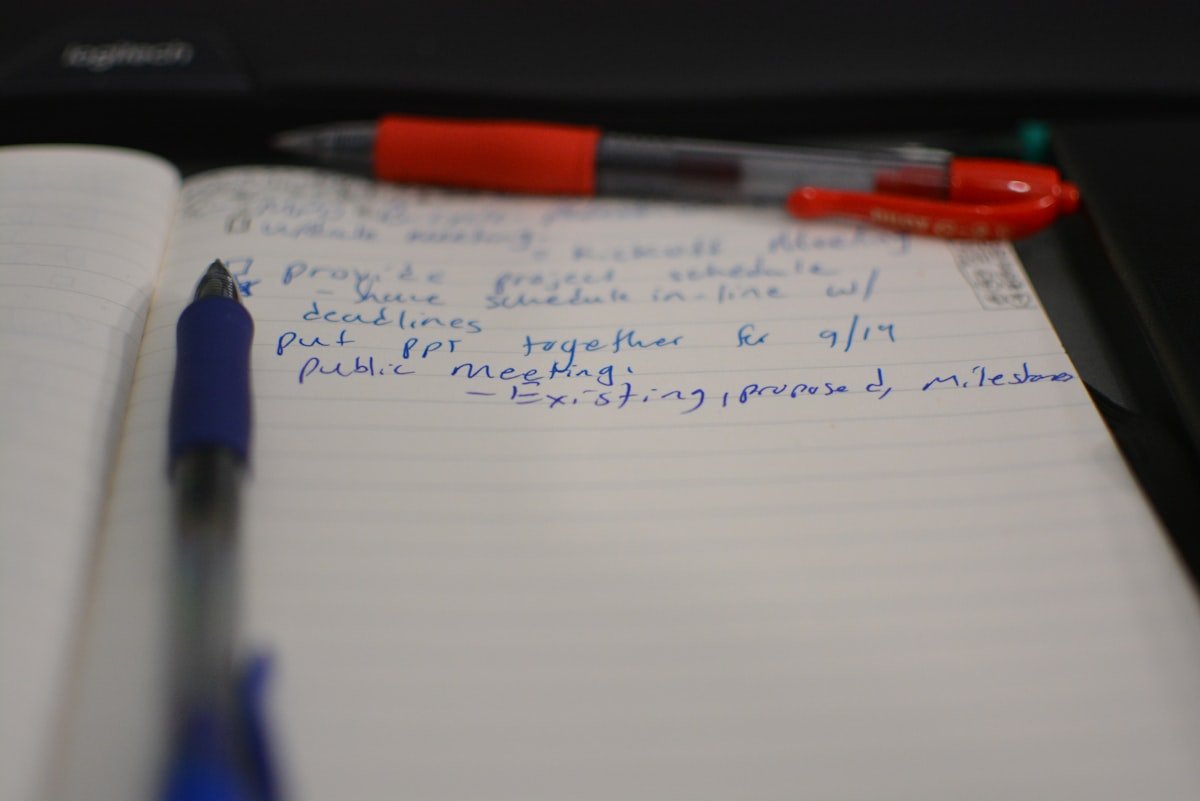 logitech
update meeting
- Kickoff Meeting
provide project schedule
- share schedule in-line w/
deadlines
put ppt together for 9/19
public meeting.
- Existing, proposed, milestones